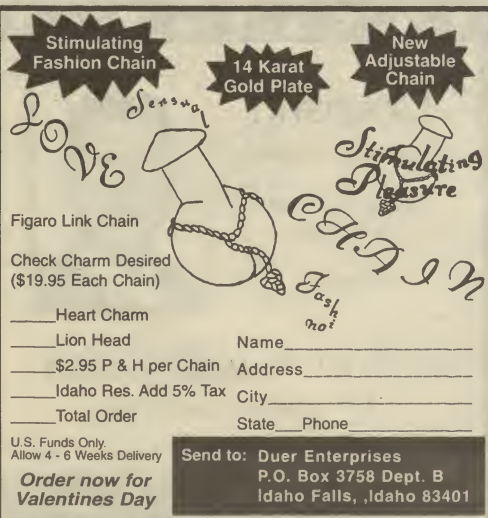 Stimulating
Fashion Chain
14 Karat
Gold Plate
New
Adjustable
Chain
LOVE
Sensual
Stimulating
Pleasure
CHAIN
Fash
noi
Figaro Link Chain
Check Charm Desired
($19.95 Each Chain)
_____Heart Charm
_____Lion Head
_____$2.95 P & H per Chain
_____Idaho Res. Add 5% Tax
_____Total Order
Name____________________
Address____________________
City____________________
State___Phone______________
U.S. Funds Only.
Allow 4 - 6 Weeks Delivery
Order now for
Valentines Day
Send to: Duer Enterprises
P.O. Box 3758 Dept. B
Idaho Falls, ,Idaho 83401